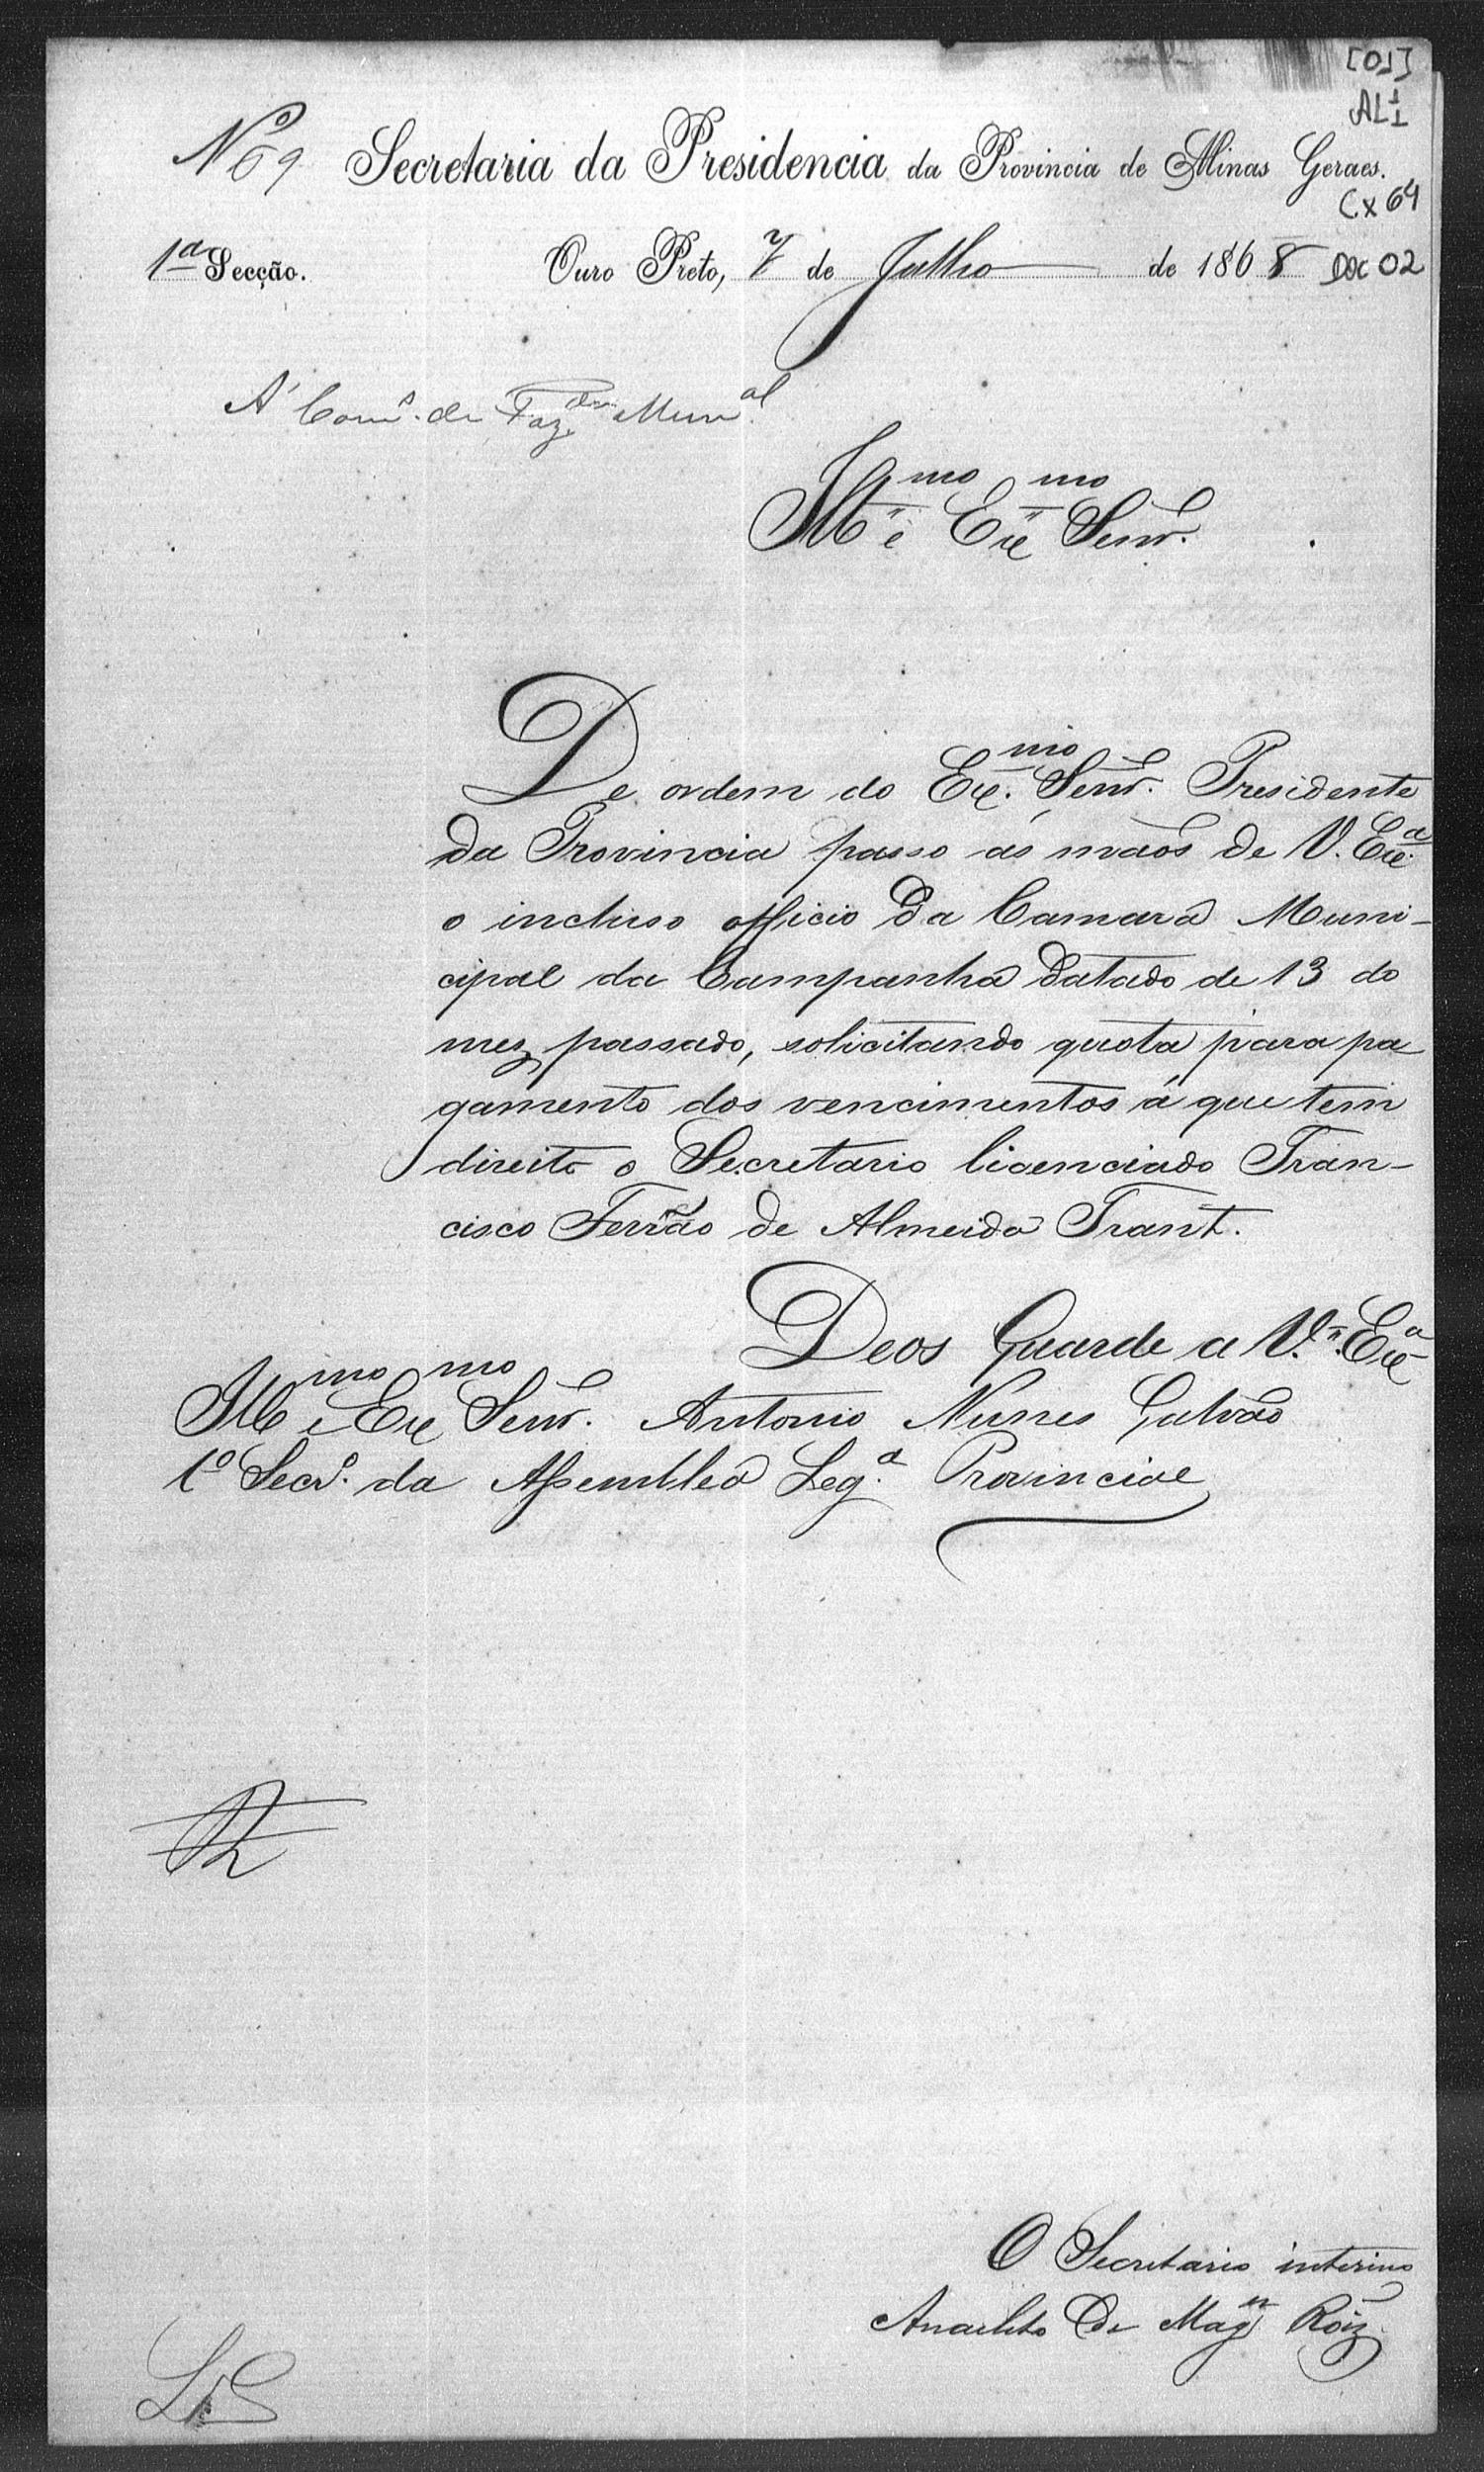 [01]
AL 1
1
Nº 69 Secretaria da Presidencia da Provincia de Minas Geraes.
Cx 64
1ª Secção. Ouro Preto, 7 de Julho de 1868 DOC 02
A' Comm. de Fazda Munal
Illmo e Exmo Senr.
De ordem do Exmo. Senr. Presidente
da Provincia passo ás mãos de V. Exª
o incluso officio da Camara Muni-
cipal da Campanha datado de 13 do
mez passado, solicitando quota para pa
gamento dos vencimentos á que tem
direito o Secretario licenciado Fran-
cisco Ferrão de Almeida Trant.
Deos Guarde a V. Exª
Illmo e Exmo Senr. Antonio Nunes Galvão
1º Secrº. da Assemblea Legª. Provincial
O Secretario interino
Anacleto de Magn Roiz